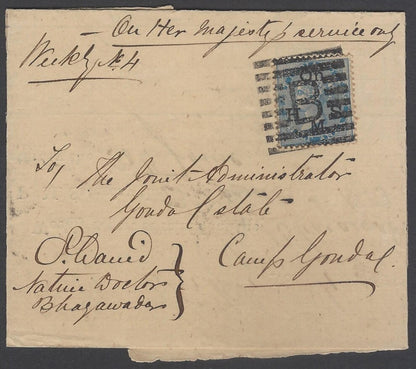 On Her Majesty's service only
Weekly No. 4
B
To,
The Joint Administrator
Gondal State
Camp Gondal.
S. David
Native Doctor
Bhayawadar